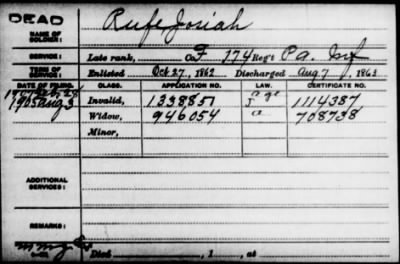 DEAD
NAME OF SOLDIER: Rufe, Josiah
SERVICE: Late rank, Co F, 174 Reg't Pa. Inf
TERM OF SERVICE: Enlisted Oct 27, 1862 Discharged Aug 7, 1863
DATE OF FILING. CLASS. APPLICATION NO. LAW. CERTIFICATE NO.
Invalid, 1338851 age 1114387
1905 Aug 3 Widow, 946054 a 708738
Minor,
ADDITIONAL SERVICES:
REMARKS:
Died , 1 , at